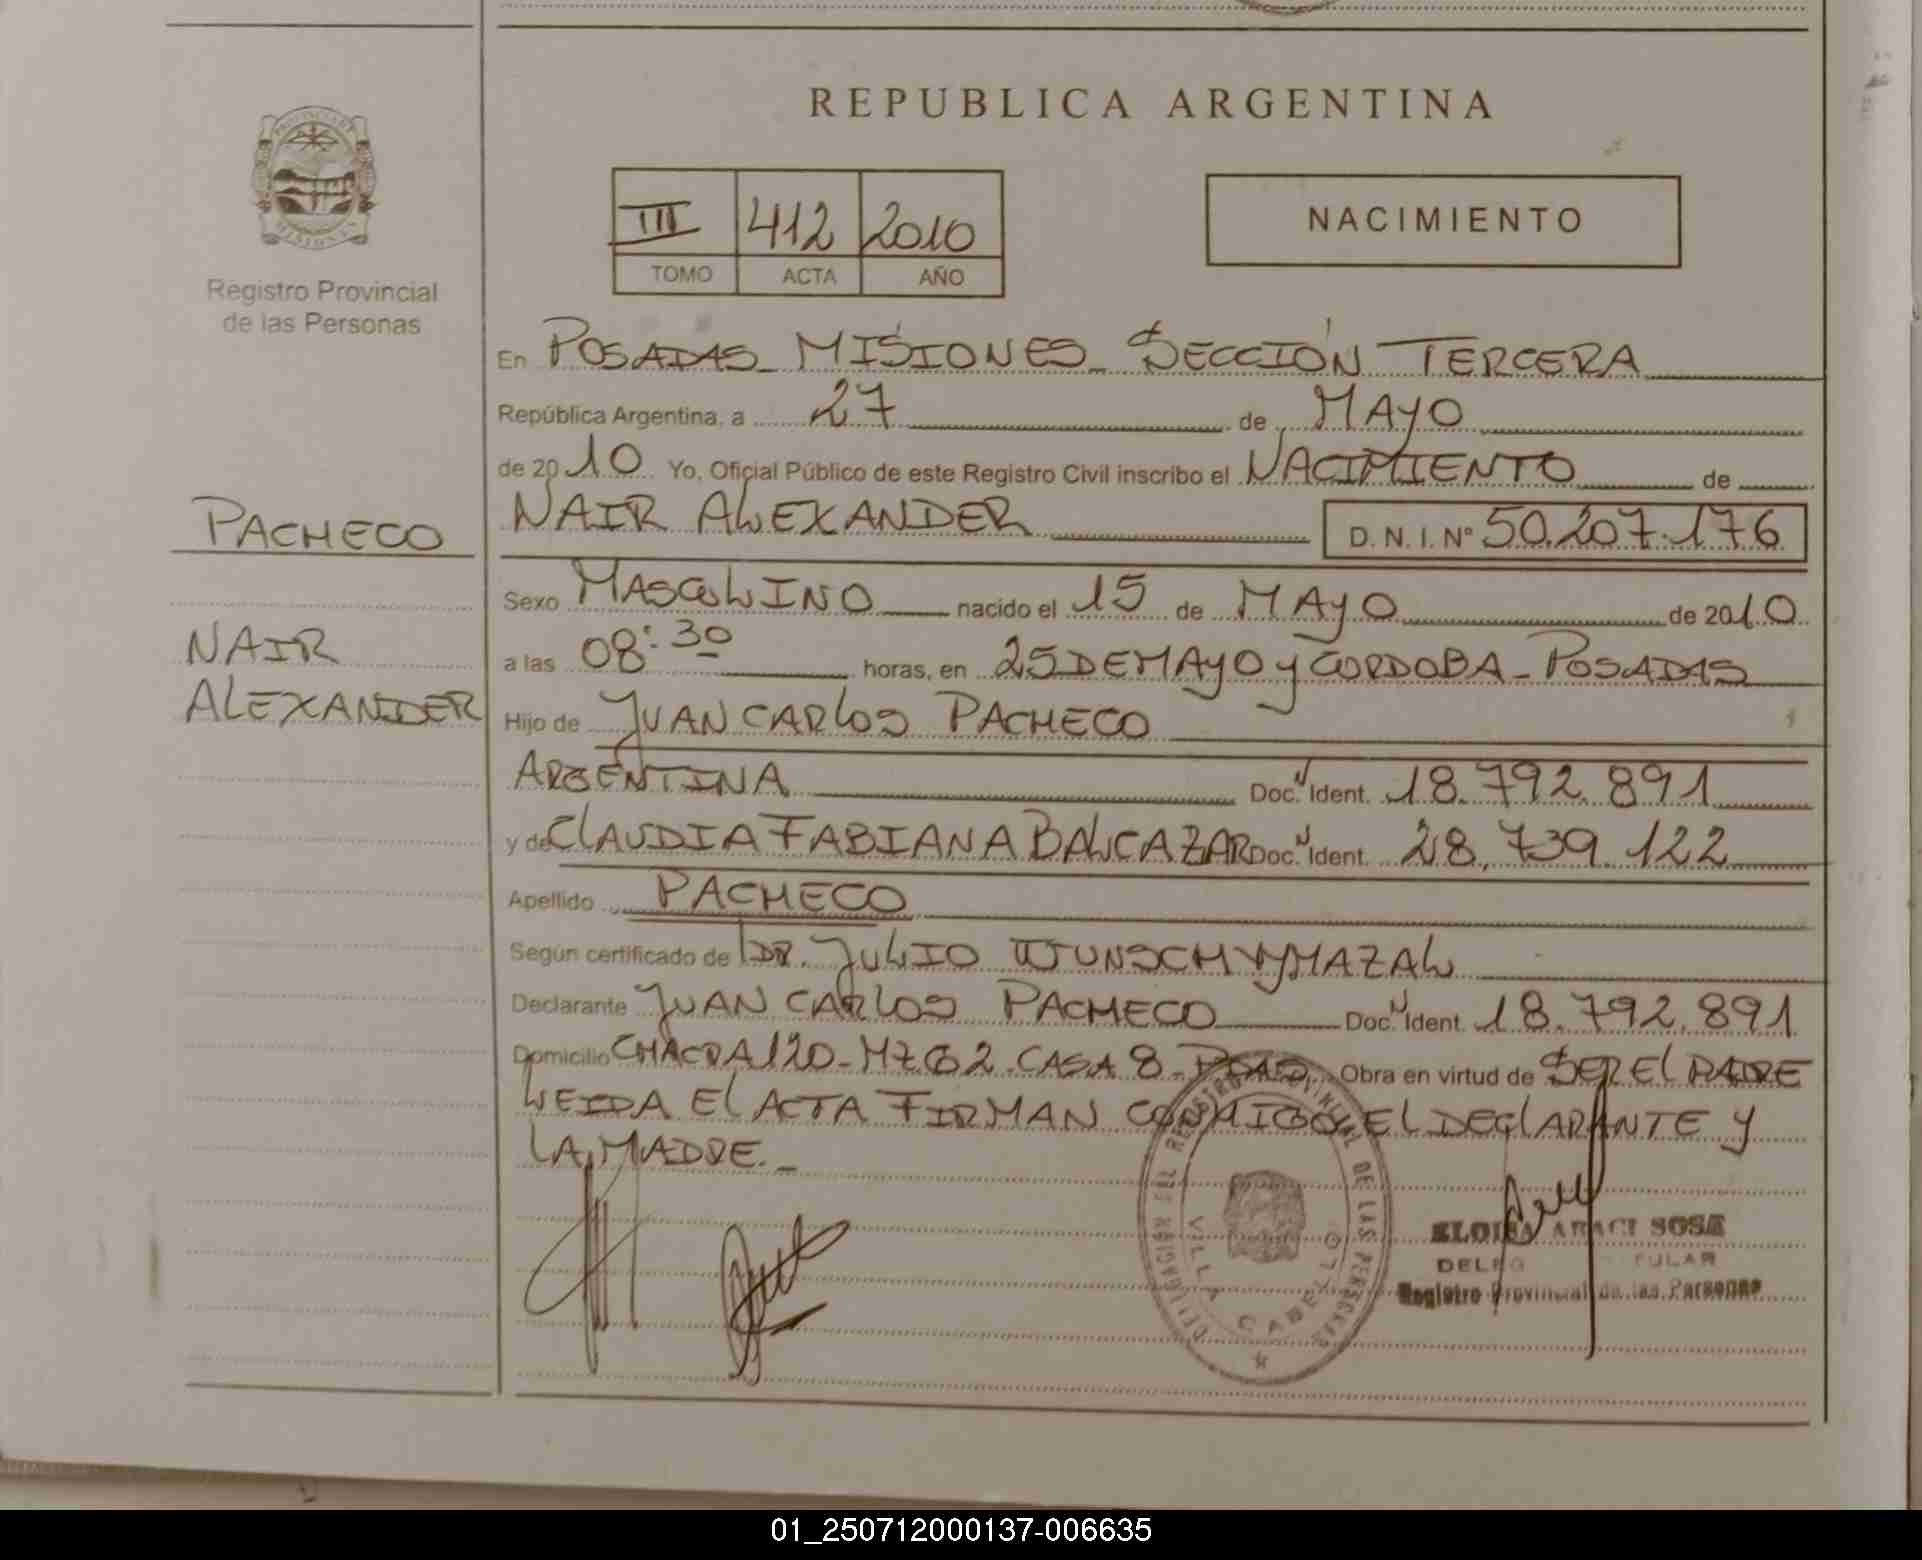 REPUBLICA ARGENTINA
PROVINCIA DE
MISIONES
Registro Provincial
de las Personas
III 412 2010
TOMO ACTA AÑO
NACIMIENTO
En POSADAS - MISIONES - SECCIÓN TERCERA
República Argentina, a 27 de MAYO
de 2010 Yo, Oficial Público de este Registro Civil inscribo el NACIMIENTO de
PACHECO
NAIR ALEXANDER D. N. I. Nº 50.207.176
Sexo MASCULINO nacido el 15 de MAYO de 2010
NAIR
ALEXANDER
a las 08:30 horas, en 25 DE MAYO y CORDOBA - POSADAS
Hijo de JUAN CARLOS PACHECO
ARGENTINA Doc. N Ident. 18.792.891
y de CLAUDIA FABIANA BALCAZAR Doc. N Ident. 28.739.122
Apellido PACHECO
Según certificado de DR. JULIO WUNSCH YMAZAL
Declarante JUAN CARLOS PACHECO Doc. N Ident. 18.792.891
Domicilio CHACRA 120 - MZ 62 - CASA 8 - PDAS Obra en virtud de SER EL PADRE
LEIDA El ACTA FIRMAN CONMIGO EL DECLARANTE Y
LA MADRE. -
DELEGACION DEL REGISTRO PROVINCIAL DE LAS PERSONAS
VILLA CABELLO
ELOISA ARACI SOSA
Registro Provincial de las Personas
01_250712000137-006635